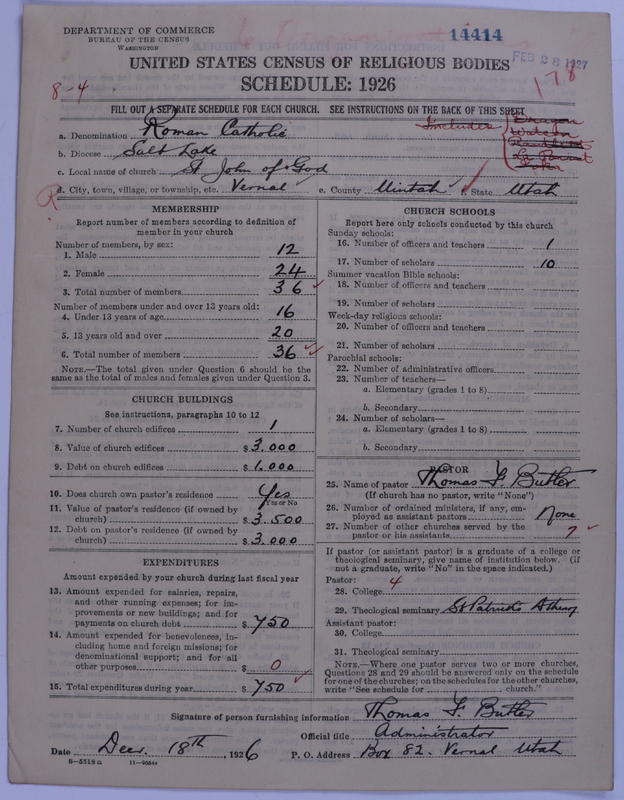 DEPARTMENT OF COMMERCE
BUREAU OF THE CENSUS
WASHINGTON
14414
FEB 28 1927
178
UNITED STATES CENSUS OF RELIGIOUS BODIES
SCHEDULE: 1926
8-4
FILL OUT A SEPARATE SCHEDULE FOR EACH CHURCH. SEE INSTRUCTIONS ON THE BACK OF THIS SHEET
a. Denomination Roman Catholic
Includes
Dragon
Watson
b. Diocese Salt Lake
c. Local name of church St John of God
d. City, town, village, or township, etc. Vernal e. County Uintah f. State Utah
MEMBERSHIP
Report number of members according to definition of
member in your church
Number of members, by sex:
1. Male 12
2. Female 24
3. Total number of members 36
Number of members under and over 13 years old:
4. Under 13 years of age 16
5. 13 years old and over 20
6. Total number of members 36
NOTE.—The total given under Question 6 should be the
same as the total of males and females given under Question 3.
CHURCH BUILDINGS
See instructions, paragraphs 10 to 12
7. Number of church edifices 1
8. Value of church edifices $ 3,000
9. Debt on church edifices $ 1,000
10. Does church own pastor's residence Yes
Yes or No
11. Value of pastor's residence (if owned by
church) $ 3,500
12. Debt on pastor's residence (if owned by
church) $ 3,000
EXPENDITURES
Amount expended by your church during last fiscal year
13. Amount expended for salaries, repairs,
and other running expenses; for im-
provements or new buildings; and for
payments on church debt $ 750
14. Amount expended for benevolences, in-
cluding home and foreign missions; for
denominational support; and for all
other purposes $ 0
15. Total expenditures during year $ 750
CHURCH SCHOOLS
Report here only schools conducted by this church
Sunday schools:
16. Number of officers and teachers 1
17. Number of scholars 10
Summer vacation Bible schools:
18. Number of officers and teachers
19. Number of scholars
Week-day religious schools:
20. Number of officers and teachers
21. Number of scholars
Parochial schools:
22. Number of administrative officers
23. Number of teachers—
a. Elementary (grades 1 to 8)
b. Secondary
24. Number of scholars—
a. Elementary (grades 1 to 8)
b. Secondary
PASTOR
25. Name of pastor Thomas F. Butler
(If church has no pastor, write "None")
26. Number of ordained ministers, if any, em-
ployed as assistant pastors None
27. Number of other churches served by the
pastor or his assistants 7
If pastor (or assistant pastor) is a graduate of a college or
theological seminary, give name of institution below. (if
not a graduate, write "No" in the space indicated.)
Pastor: 4
28. College
29. Theological seminary St Patrick's
Assistant pastor:
30. College
31. Theological seminary
NOTE.—Where one pastor serves two or more churches,
Questions 28 and 29 should be answered only on the schedule
for one of the churches; on the schedules for the other churches,
write "See schedule for church."
Signature of person furnishing information Thomas F. Butler
Official title Administrator
Date Dec. 18th, 1926 P. O. Address Box 82. Vernal Utah
8-5318a 11-9054a